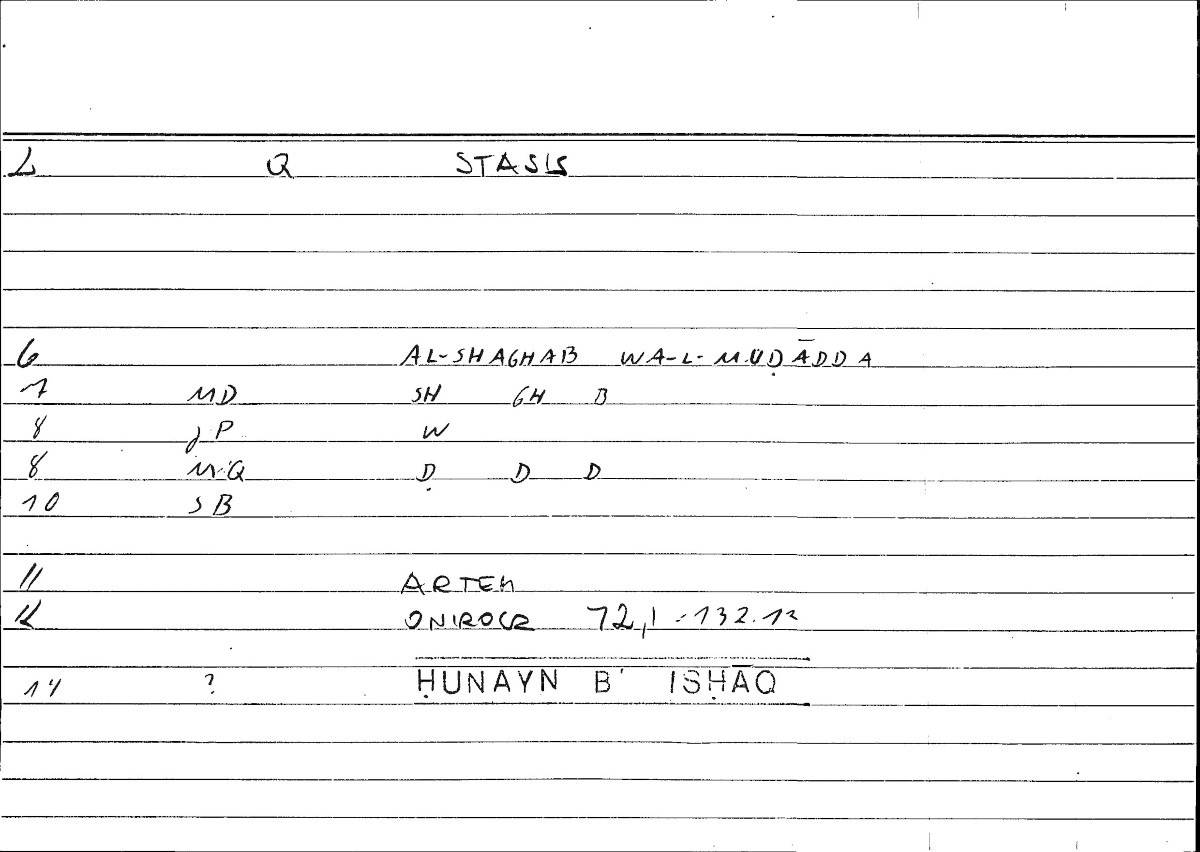 2 Q STASIS
6 AL-SHAGHAB WA-L-MUḌĀDDA
7 MD SH GH B
8 JP W
8 MQ Ḍ D D
10 SB
11 ARTEM
12 ONIROCR 72,1 - 132.12
14 ? ḤUNAYN B' ISḤĀQ